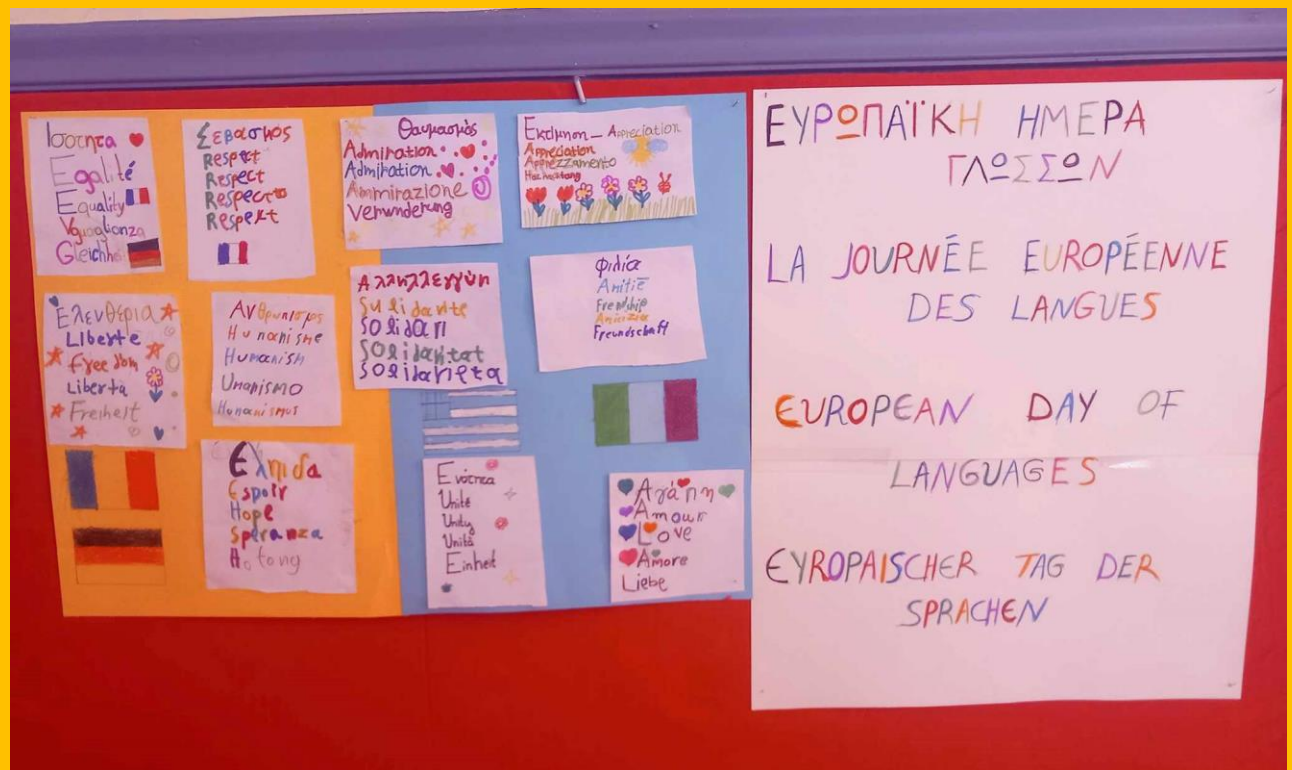 Ισοτητα
Egalité
Equality
Vguaglianza
Gleichhe
Σεβασμος
Respect
Respect
Respecto
Respekt
Θαυμασμός
Admiration
Admiration
Ammirazione
Verwunderung
Εκτίμηση - Appreciation
Appreciation
Apprezzamento
Ελευθερια
Liberte
Freedom
Liberta
Freiheit
Ανθρωπισμος
Humanisme
Humanism
Umanismo
Humanismus
Αλληλλεγγύη
Solidarite
Solidari
Solidaritat
Solidarieta
Φιλία
Amitié
Frendship
Amicizia
Freundschaft
Ελπιδα
Espoir
Hope
Speranza
Ενότητα
Unité
Unity
Unità
Einheit
Αγάπη
Amour
Love
Amore
Liebe
ΕΥΡΩΠΑΪΚΗ ΗΜΕΡΑ
ΓΛΩΣΣΩΝ
LA JOURNÉE EUROPÉENNE
DES LANGUES
EUROPEAN DAY OF
LANGUAGES
EYROPAISCHER TAG DER
SPRACHEN